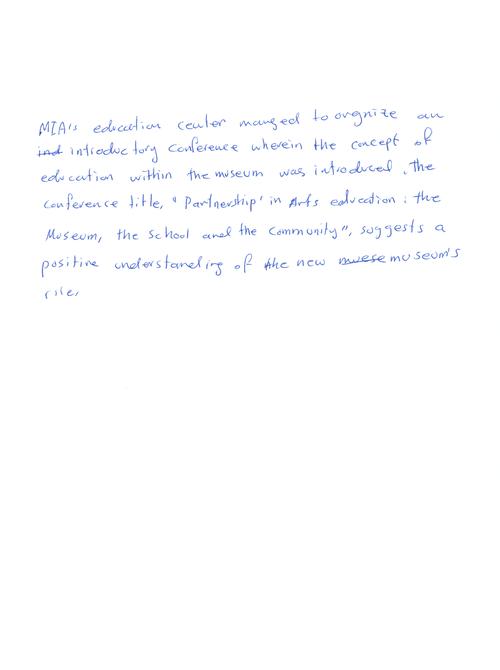 MIA's education center manged to orgnize an
ind introductory conference wherein the concept of
education within the museum was introduced. The
conference title, "Partnership' in Arts education: the
Museum, the School and the Community", suggests a
positive understanding of the new muese museum's
rile.